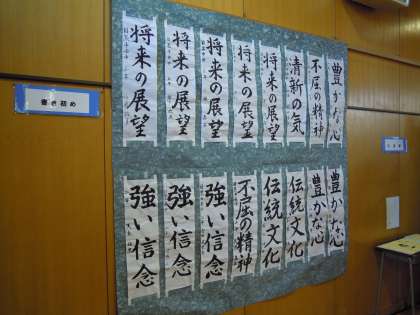 書き初め
豊かな心
不屈の精神
清新の気
将来の展望
将来の展望
将来の展望
将来の展望
将来の展望
豊かな心
豊かな心
伝統文化
伝統文化
不屈の精神
強い信念
強い信念
強い信念